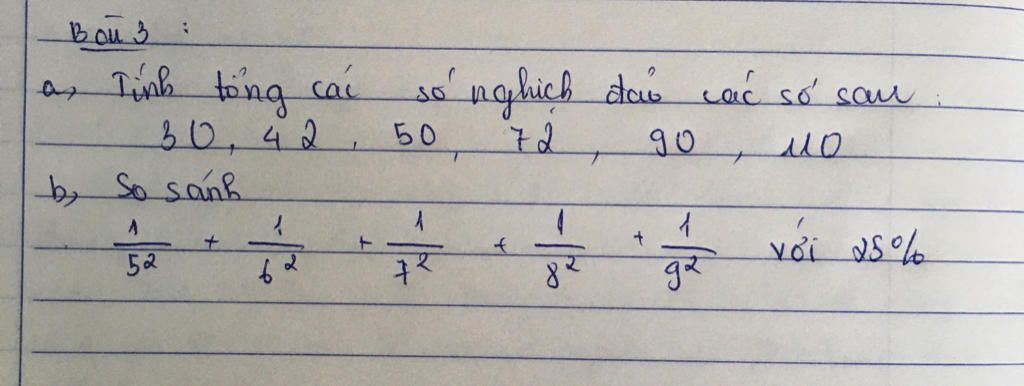 Bài 3 :
a, Tính tổng các số nghịch đảo các số sau :
30, 42, 50, 72, 90, 110
b, So sánh
1/5² + 1/6² + 1/7² + 1/8² + 1/9² với 25%